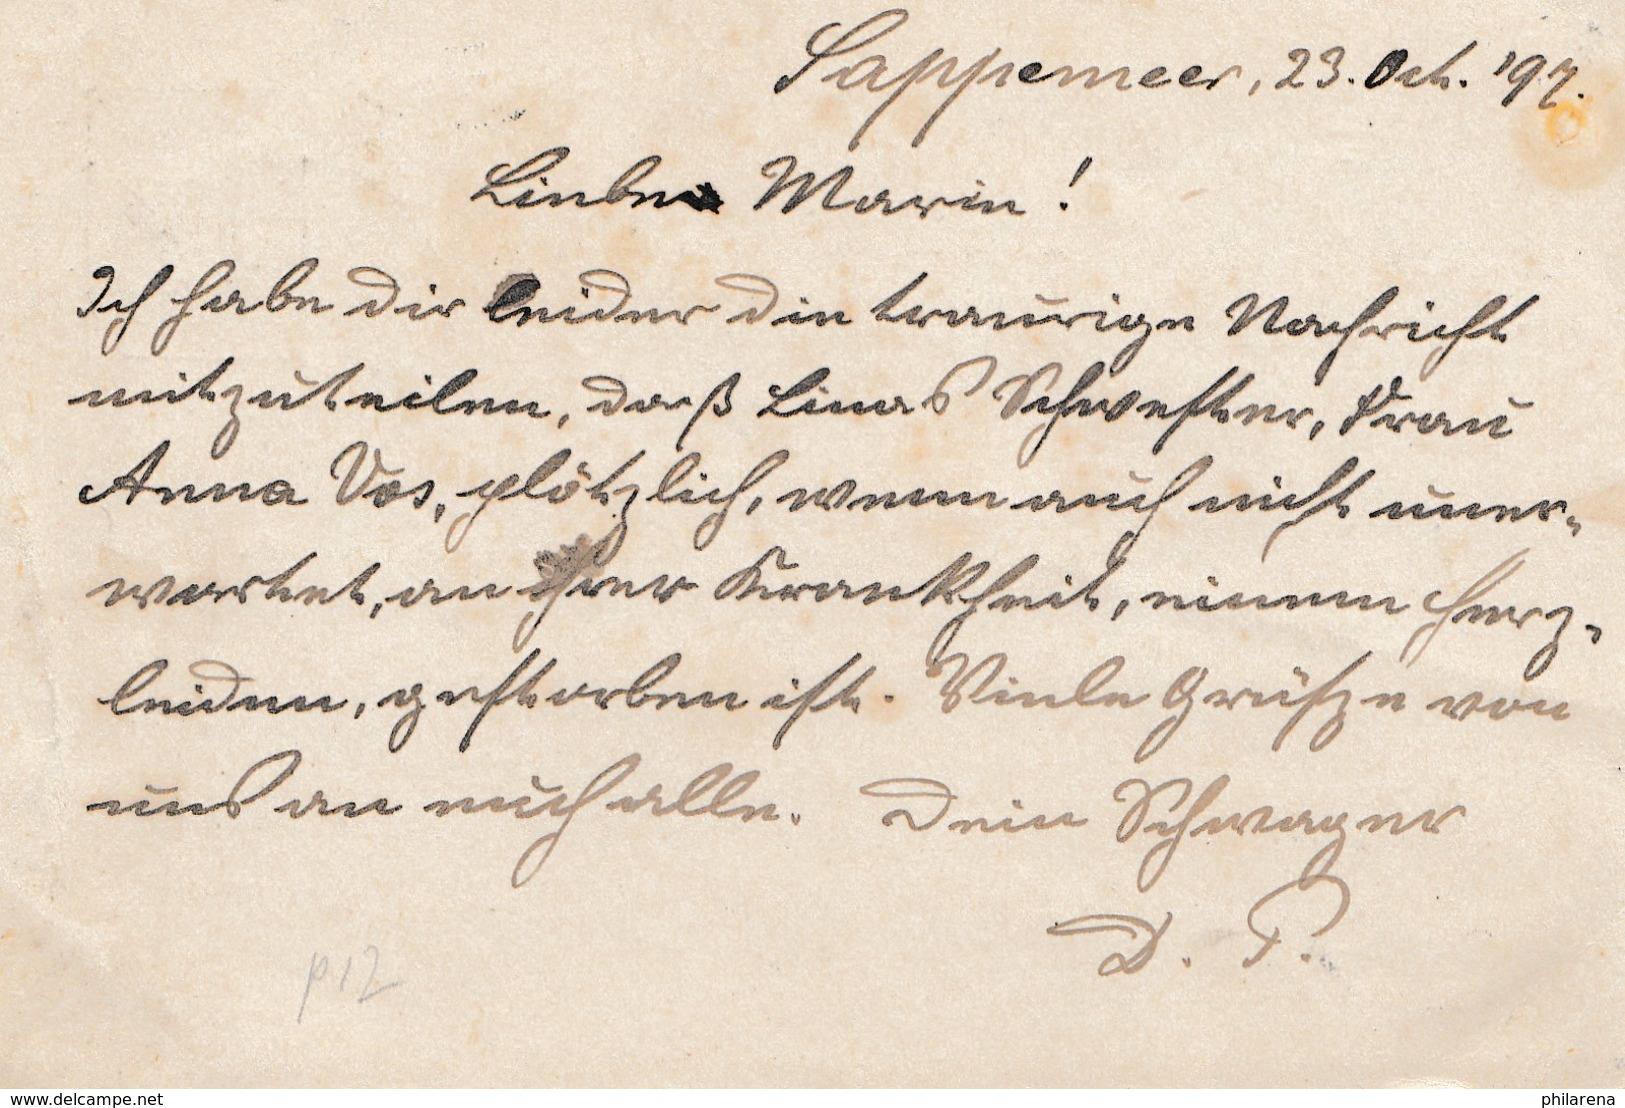 Sappemeer, 23. Oct. '97.
Liebe Marie!
Ich habe dir leider die traurige Nachricht
mitzuteilen, daß Linas Schwester, Frau
Anna Vos, plötzlich, wenn auch nicht uner-
wartet, an ihrer Krankheit, einem Herz-
leiden, gestorben ist. Viele Grüsze von
uns an euch alle. Dein Schwager
D. T.
p12
www.delcampe.net
philarena